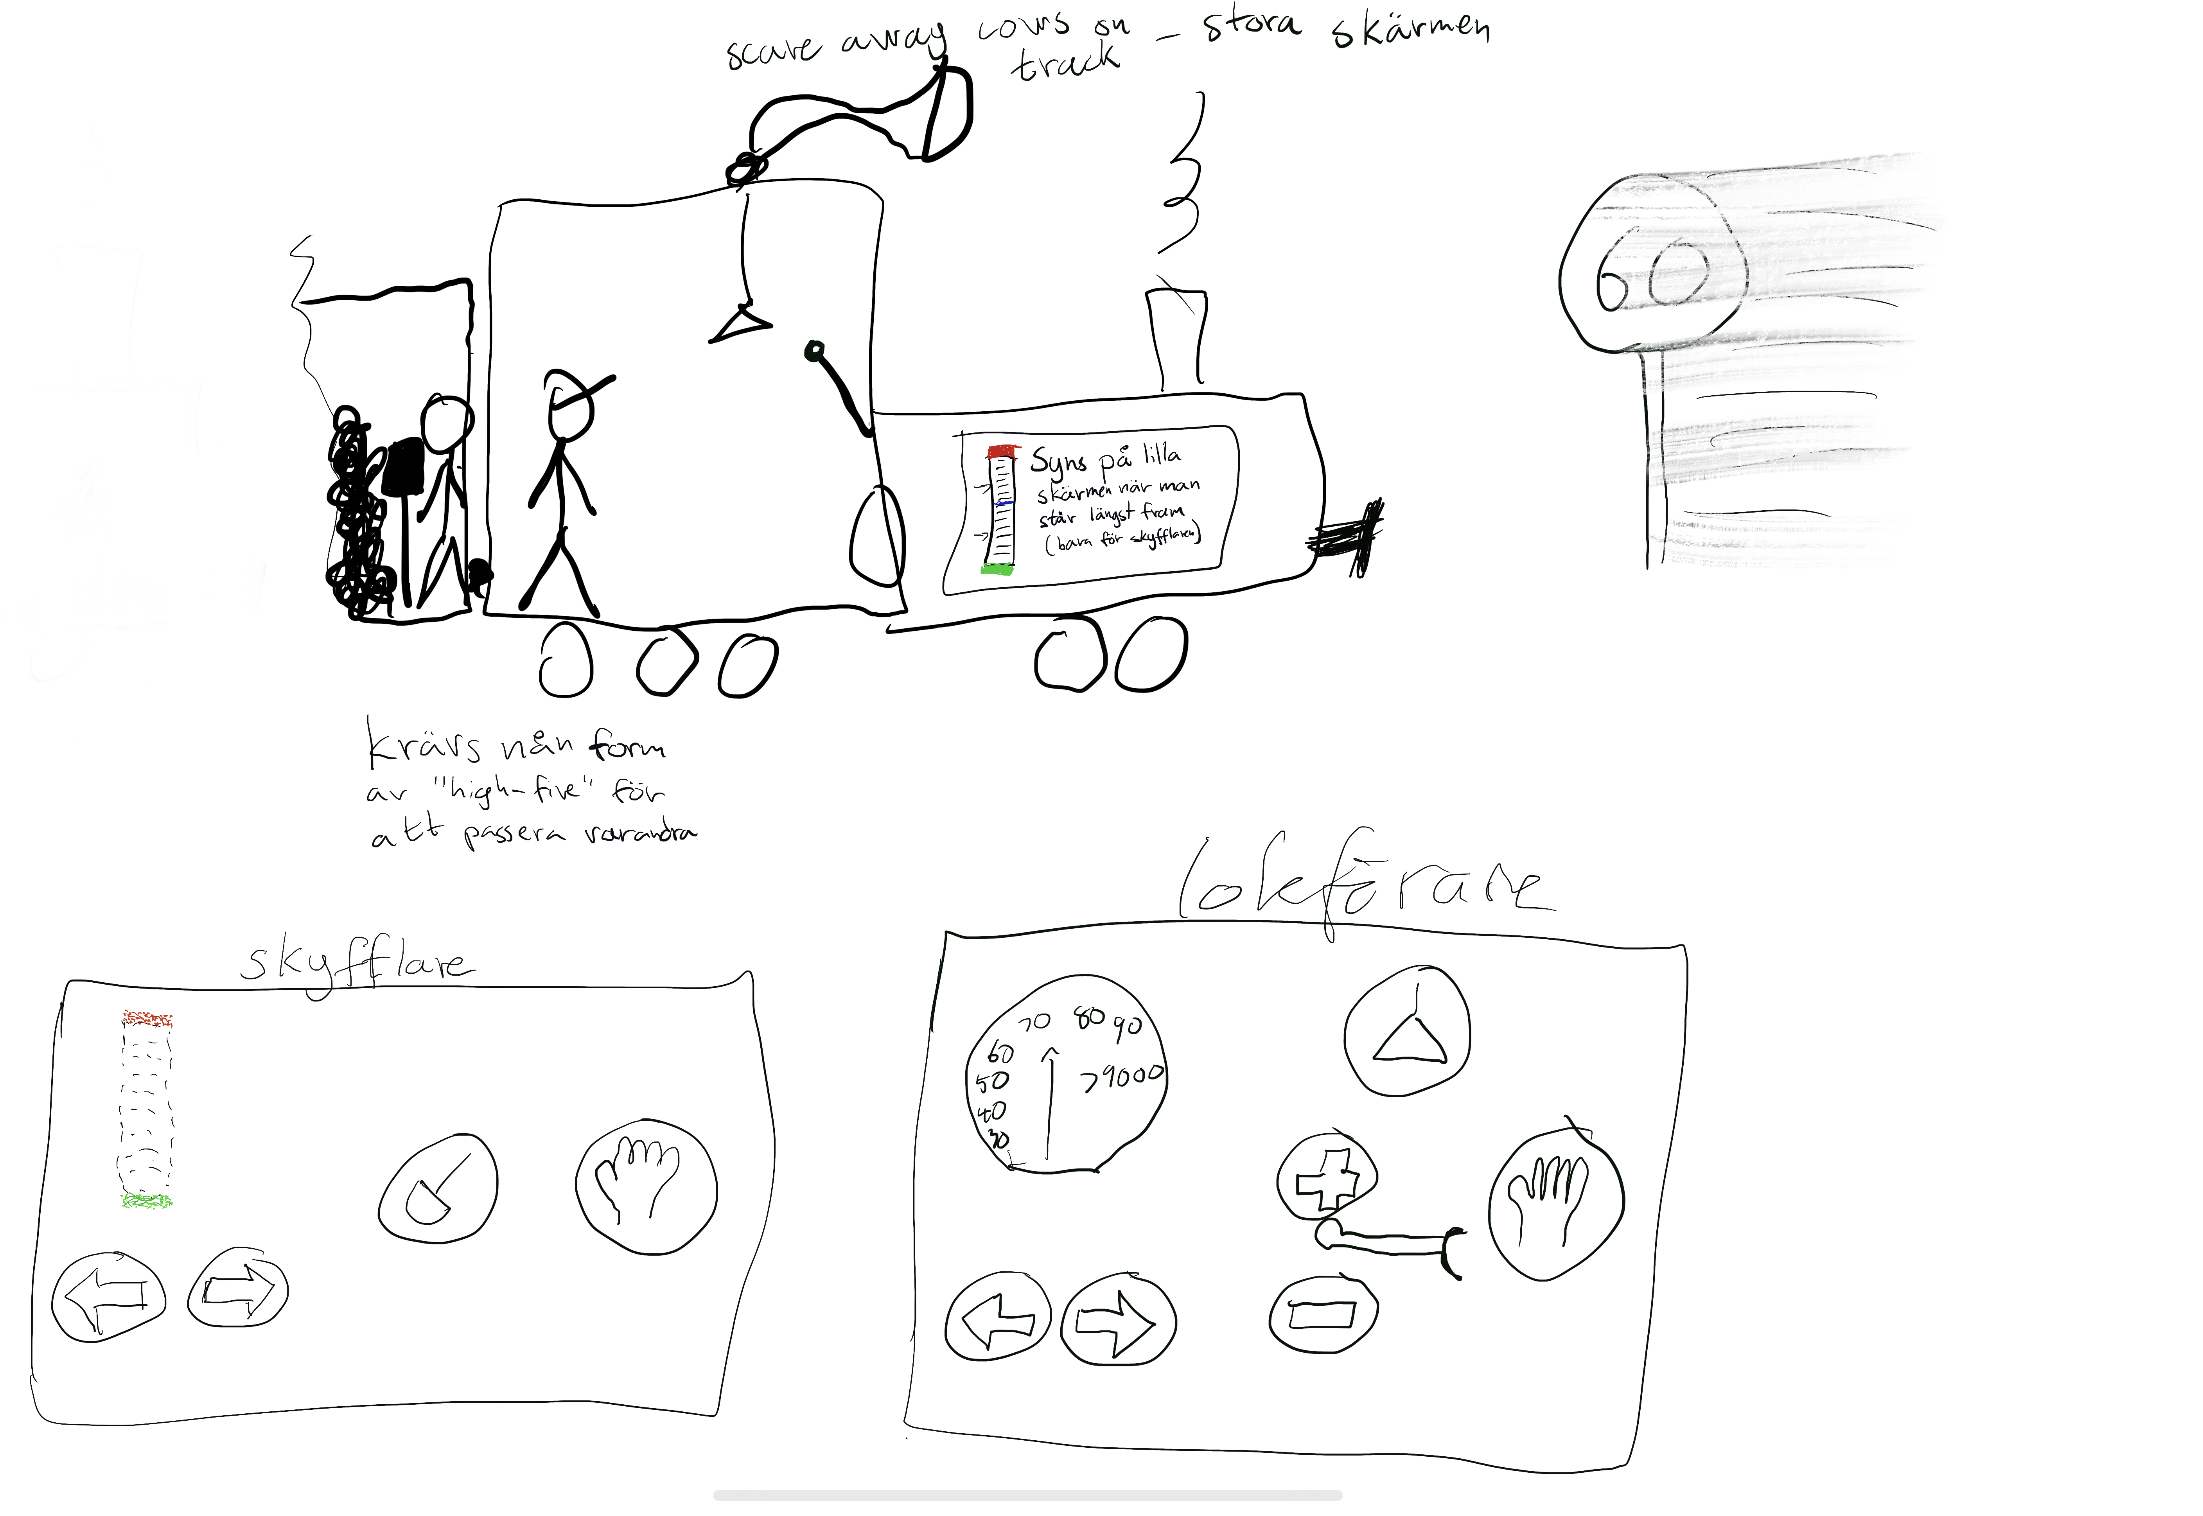 scare away cows on – stora skärmen
track
Syns på lilla
skärmen när man
står längst fram
(bara för skyfflaren)
krävs nån form
av "high-five" för
att passera varandra
skyfflare
lokförare
70 80 90
60
50 >9000
40
30